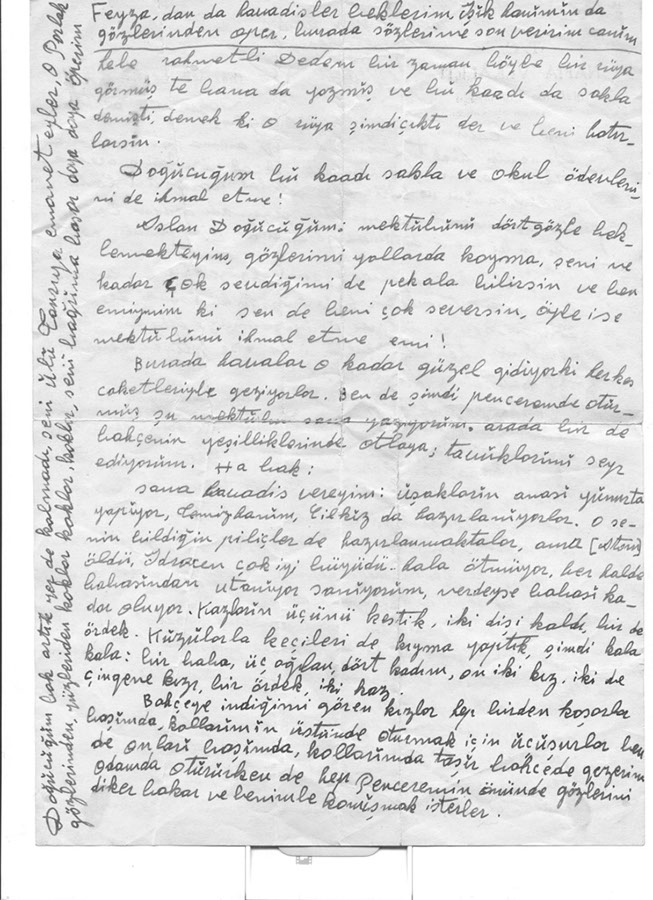 Feyza, dan da havadisler beklerim, ışık hanımın da
gözlerinden öper, burada sözlerime son veririm canım
hele rahmetli Dedem bir zaman böyle bir rüya
görmüş te bana da yazmış ve bu kaadı da sakla
demişti, demek ki o rüya şimdi çıktı der ve beni hatır-
larsın.
Doğucuğum bu kaadı sakla ve okul ödevleri-
ni de ihmal etme!
Aslan Doğucuğum: mektubunu dört gözle bek-
lemekteyim, gözlerimi yollarda koyma, seni ne
kadar çok sevdiğimi de pekala bilirsin ve ben
eminim ki sen de beni çok seversin, öyle ise
mektubunu ihmal etme emi!
Burada havalar o kadar güzel gidiyorki herkes
caketleriyle geziyorlar. Ben de şimdi penceremde otur-
muş şu mektubu sana yazıyorum, arada bir de
bahçenin yeşilliklerinde otlayan tavuklarımı seyr
ediyorum. Ha bak:
sana havadis vereyim: uşakların anası yumurta
yapıyor, Temizhanım, Cilkız da hazırlanıyorlar. O se-
nin bildiğin piliçler de hazırlanmaktalar, ama
öldü, çok iyi büyüdü - hala ötmüyor, her halde
babasından utanıyor sanıyorum, nerdeyse babası ka-
dar oluyor. Kazların üçünü kestik, iki dişi kaldı, bir de
ördek. Kuzularla keçileri de kıyma yaptık, şimdi kala
kala: bir baba, üç oğlan, dört kadın, on iki kız, iki de
çingene kızı, bir ördek, iki kaz.
Bahçeye indiğimi gören kızlar hep birden koşarlar
başımda, kollarımın üstünde oturmak için uçuşurlar ben
de onları başımda, kollarımda taşır bahçede gezerim
odamda otururken de hep Penceremin önünde gözlerini
diker bakar ve benimle konuşmak isterler.
Doğucuğum bak artık yer de kalmadı, seni ulu Tanrıya emanet eyler, o Parlak
gözlerinden, yüzlerinden koklar koklar, koklar, seni bağrıma basar doya doya öperim